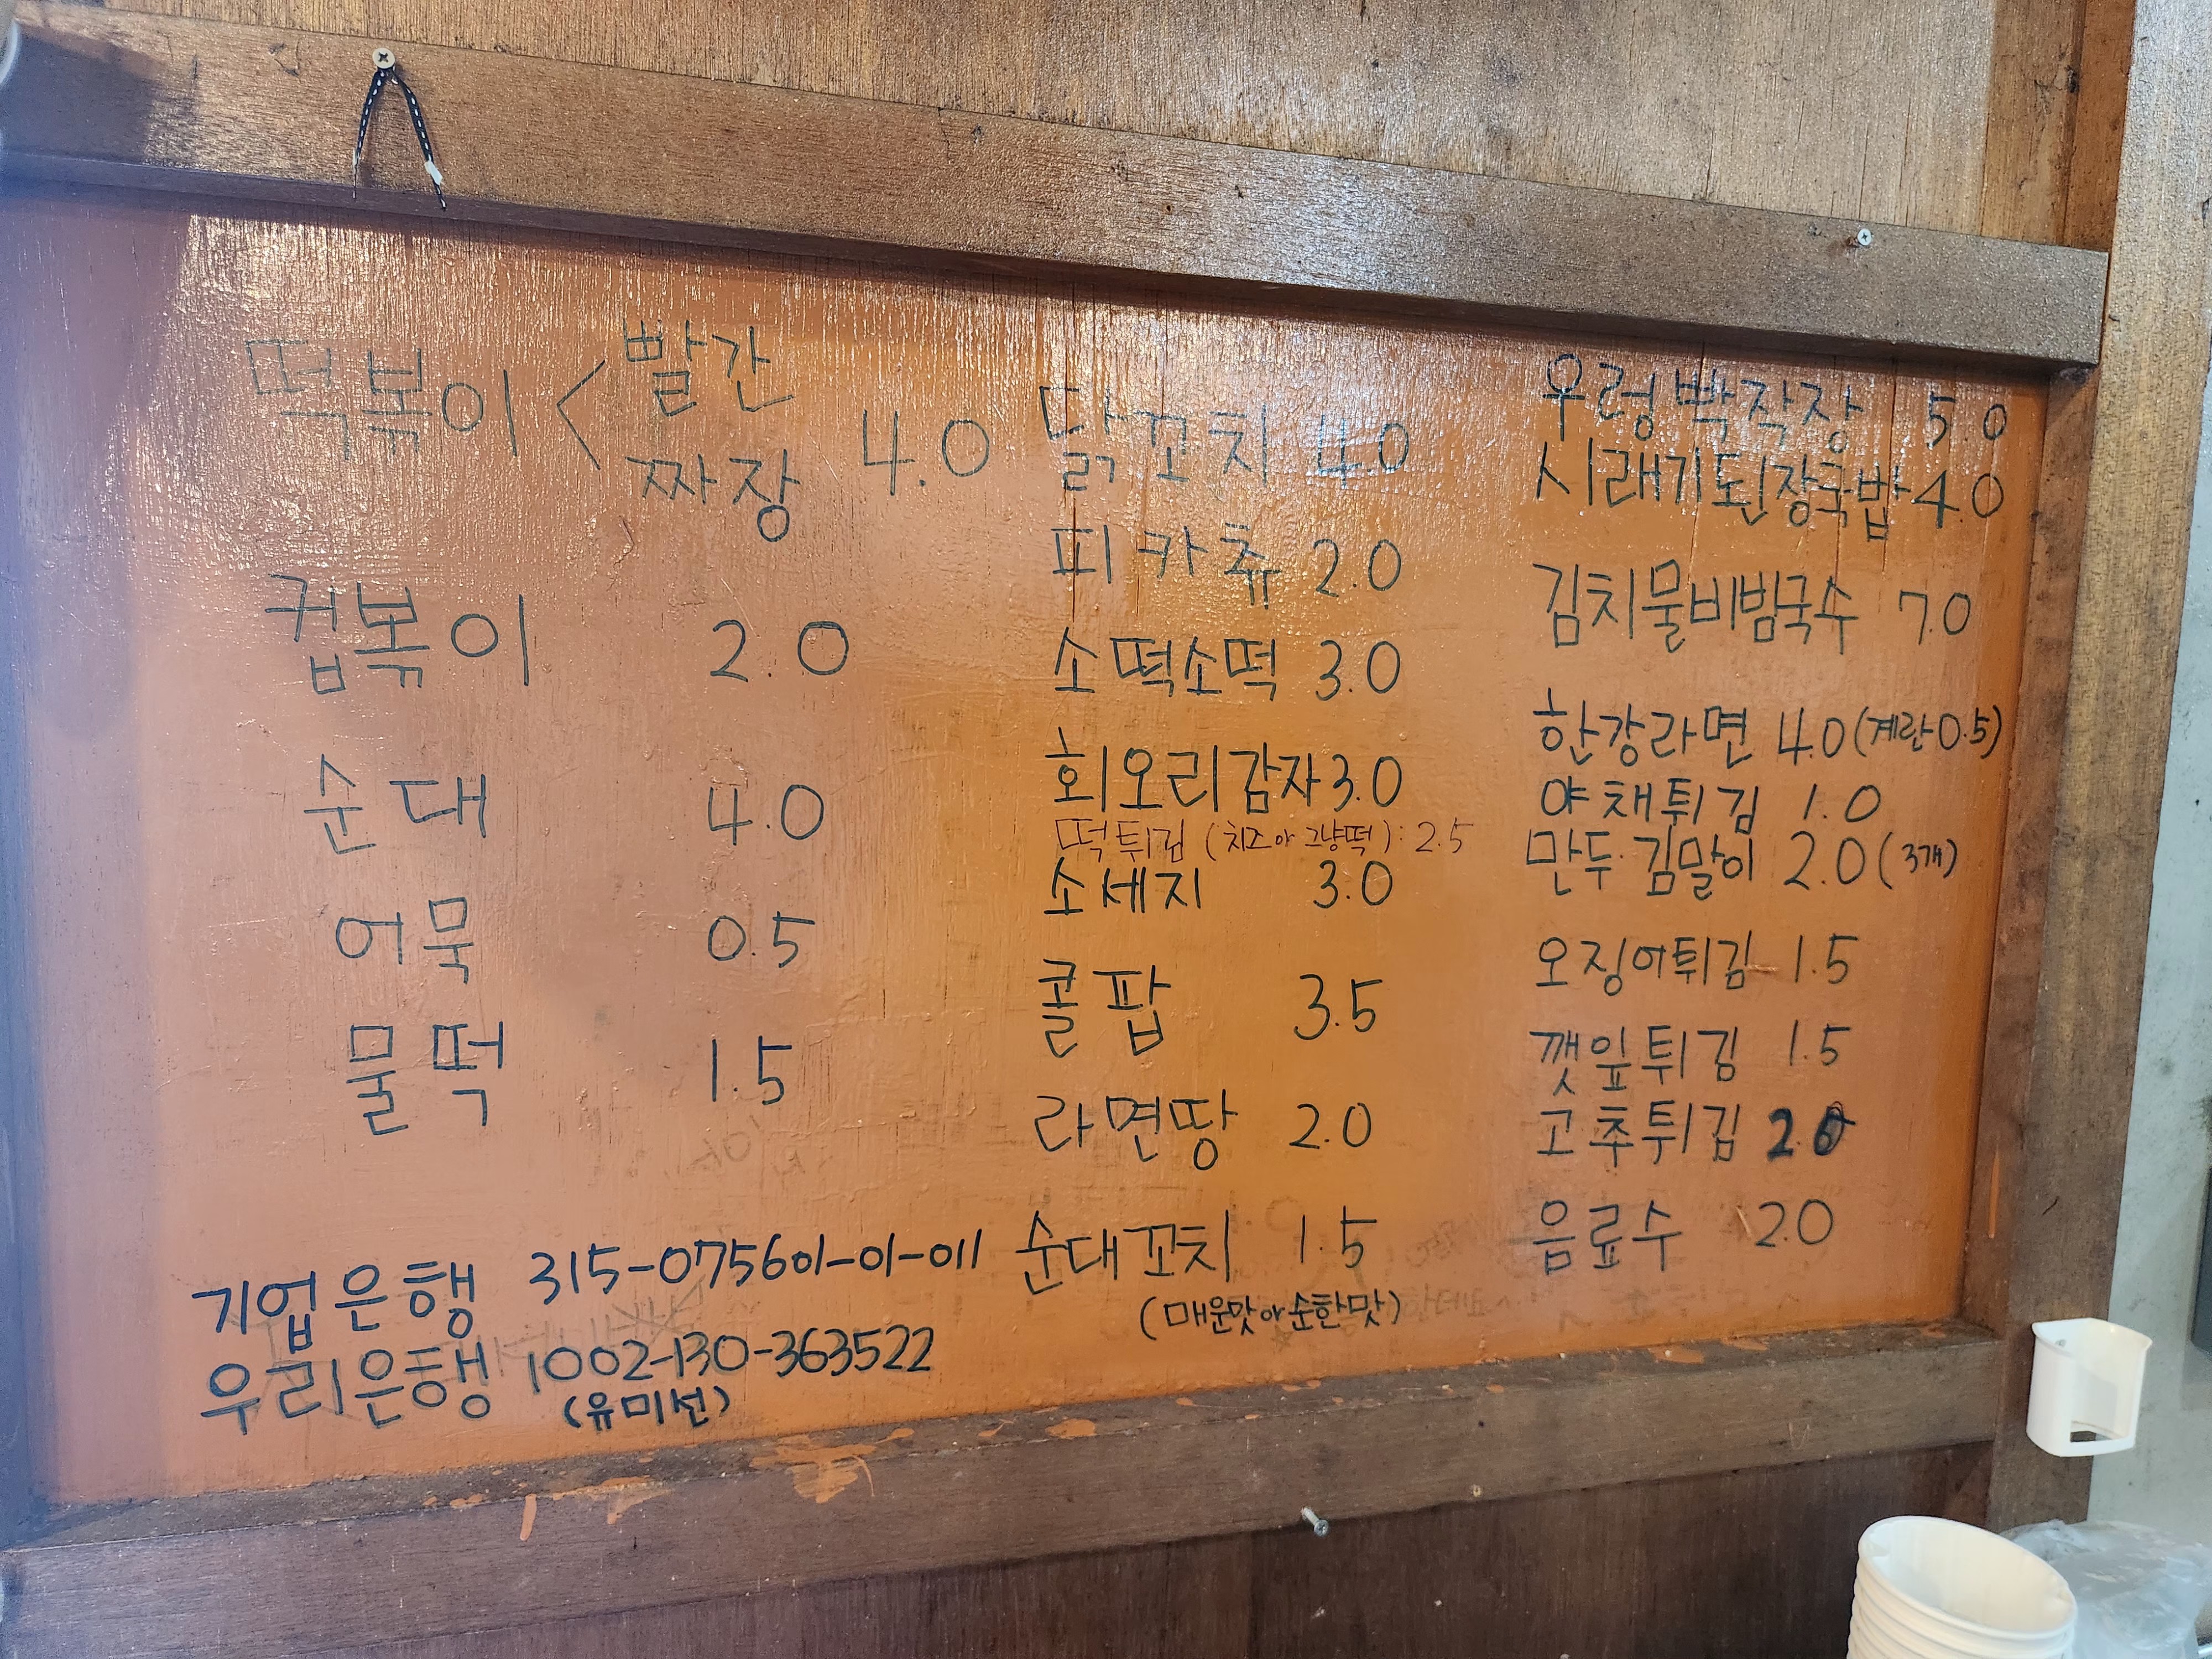 떡볶이 < 빨간 짜장 4.0
컵볶이 2.0
순대 4.0
어묵 0.5
물떡 1.5
기업은행 315-075601-01-011
우리은행 1002-130-363522
(유미선)
닭꼬치 4.0
피카츄 2.0
소떡소떡 3.0
회오리감자 3.0
떡튀김 (치즈아그냥떡): 2.5
소세지 3.0
콜팝 3.5
라면땅 2.0
순대꼬치 1.5
(매운맛아순한맛)
우렁빡작장 5.0
시래기된장국밥 4.0
김치물비빔국수 7.0
한강라면 4.0 (계란0.5)
야채튀김 1.0
만두·김말이 2.0 (3개)
오징어튀김 1.5
깻잎튀김 1.5
고추튀김 2.0
음료수 2.0